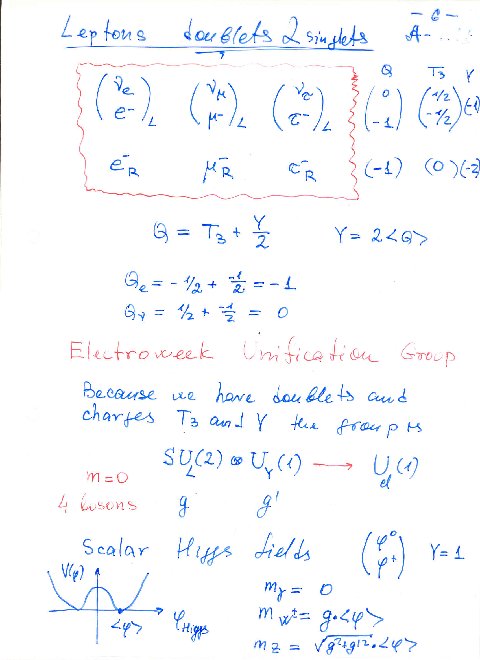 - 6 -
Leptons doublets 2 singlets A-
Q T₃ Y
(νe e⁻)L (νμ μ⁻)L (ντ τ⁻)L (0 -1) (1/2 -1/2) (-1)
e⁻R μ⁻R τ⁻R (-1) (0) (-2)
Q = T₃ + Y/2 Y = 2<Q>
Qe = - 1/2 + -1/2 = -1
Qν = 1/2 + -1/2 = 0
Electroweek Unification Group
Because we have doublets and
charges T₃ and Y the group is
SUL(2) ⊗ UY(1) → Uel(1)
m=0
4 bosons g g'
Scalar Higgs fields (φ⁰ φ⁺) Y=1
V(φ)
<φ> φHiggs
mγ = 0
mW± = g·<φ>
mZ = √g²+g'²·<φ>